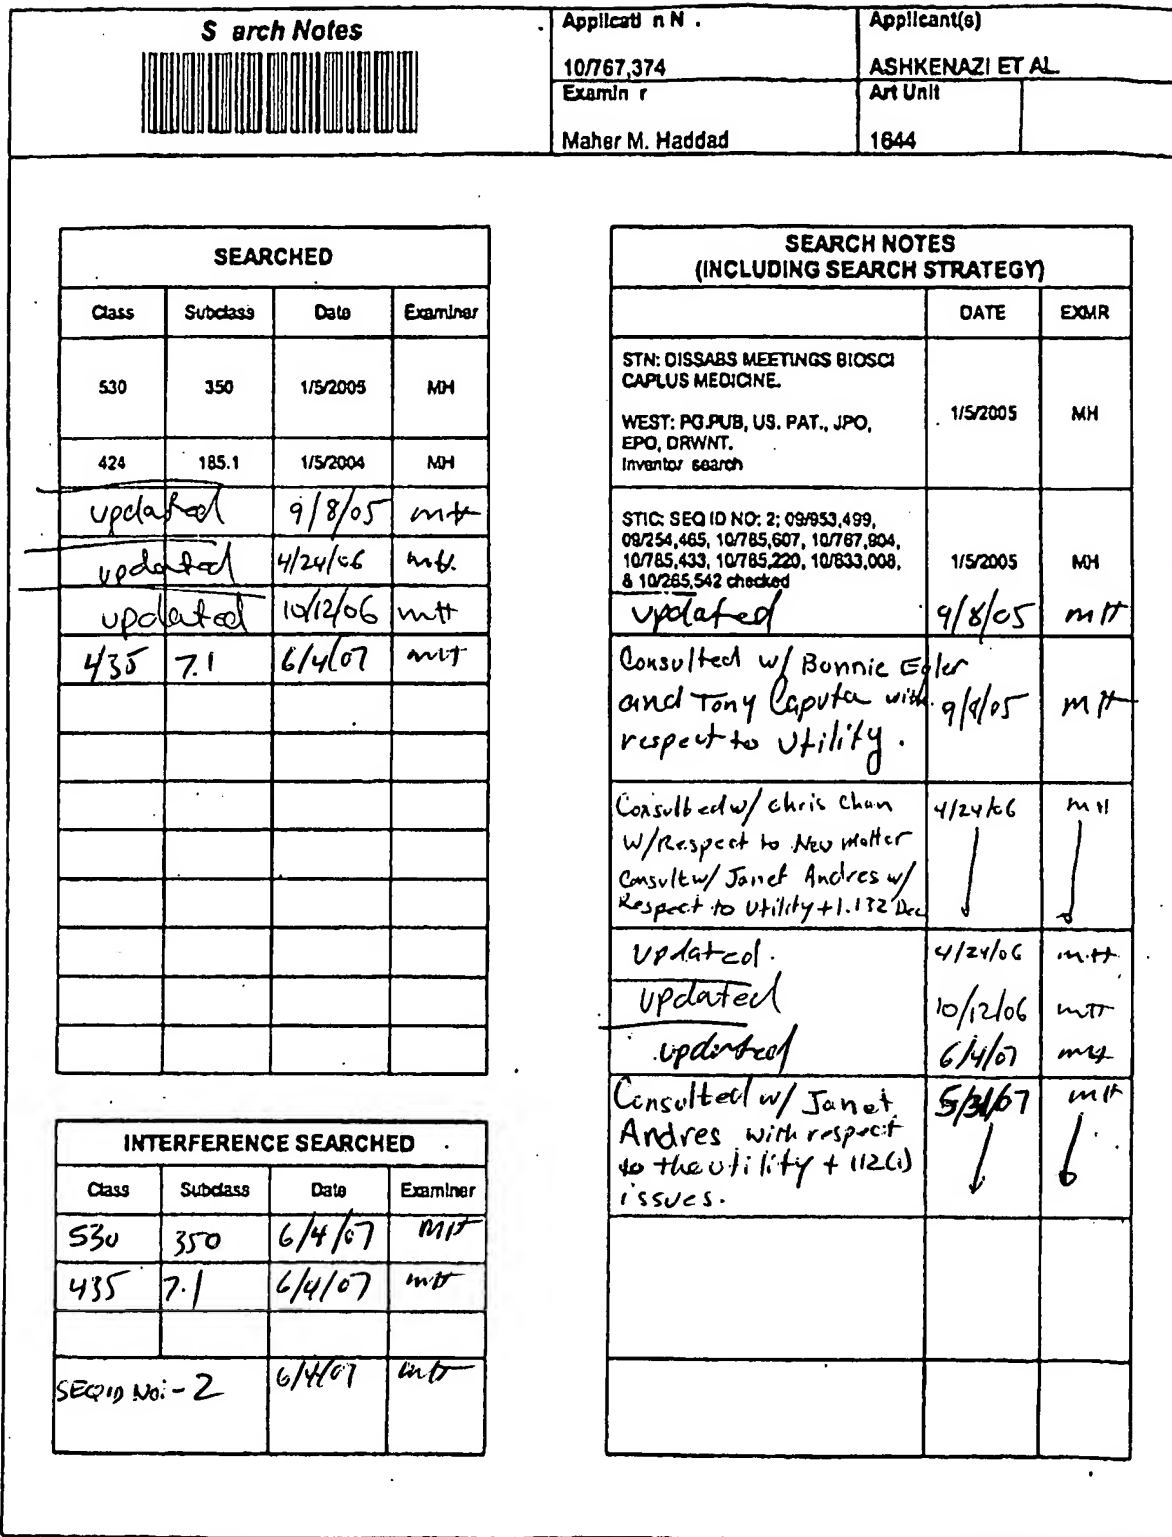 S arch Notes
Applicati n N .
10/767,374
Applicant(s)
ASHKENAZI ET AL.
Examin r
Maher M. Haddad
Art Unit
1644
SEARCHED
Class Subclass Date Examiner
530 350 1/5/2005 MH
424 185.1 1/5/2004 MH
updated 9/8/05 MH
updated 4/24/06 MH
updated 10/12/06 MH
435 7.1 6/4/07 MH
INTERFERENCE SEARCHED
Class Subclass Date Examiner
530 350 6/4/07 MH
435 7.1 6/4/07 MH
SEQ ID No:-2 6/4/07 MH
SEARCH NOTES
(INCLUDING SEARCH STRATEGY)
DATE EXMR
STN: DISSABS MEETINGS BIOSCI
CAPLUS MEDICINE.
WEST: PG.PUB, US. PAT., JPO,
EPO, DRWNT.
Inventor search
1/5/2005 MH
STIC: SEQ ID NO: 2; 09/953,499,
09/254,465, 10/785,607, 10/767,904,
10/785,433, 10/785,220, 10/633,008,
& 10/265,542 checked
1/5/2005 MH
updated 9/8/05 MH
Consulted w/ Bonnie Eyler
and Tony Caputa with
respect to Utility.
9/8/05 MH
Consulted w/ Chris Chan
w/Respect to New Matter
Consult w/ Janet Andres w/
Respect to Utility + 1.132 Dec
4/24/06 MH
Updated. 4/24/06 MH
updated 10/12/06 MH
updated 6/4/07 MH
Consulted w/ Janet
Andres with respect
to the utility + 112(1)
issues.
5/31/07 MH